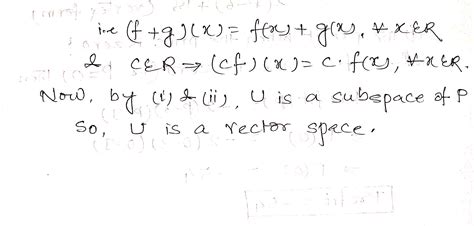 i.e (f+g)(x) = f(x) + g(x), ∀ x ∈ R
& c ∈ R ⇒ (cf)(x) = c · f(x), ∀ x ∈ R.
Now, by (i) & (ii), U is a subspace of P
So, U is a vector space.